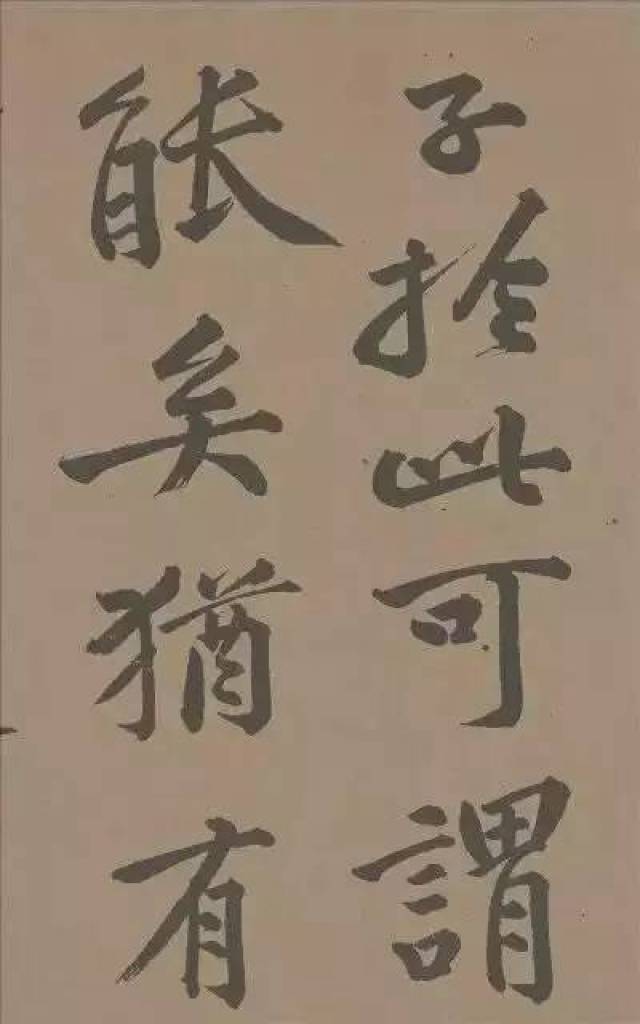 子於此可謂
能矣猶有